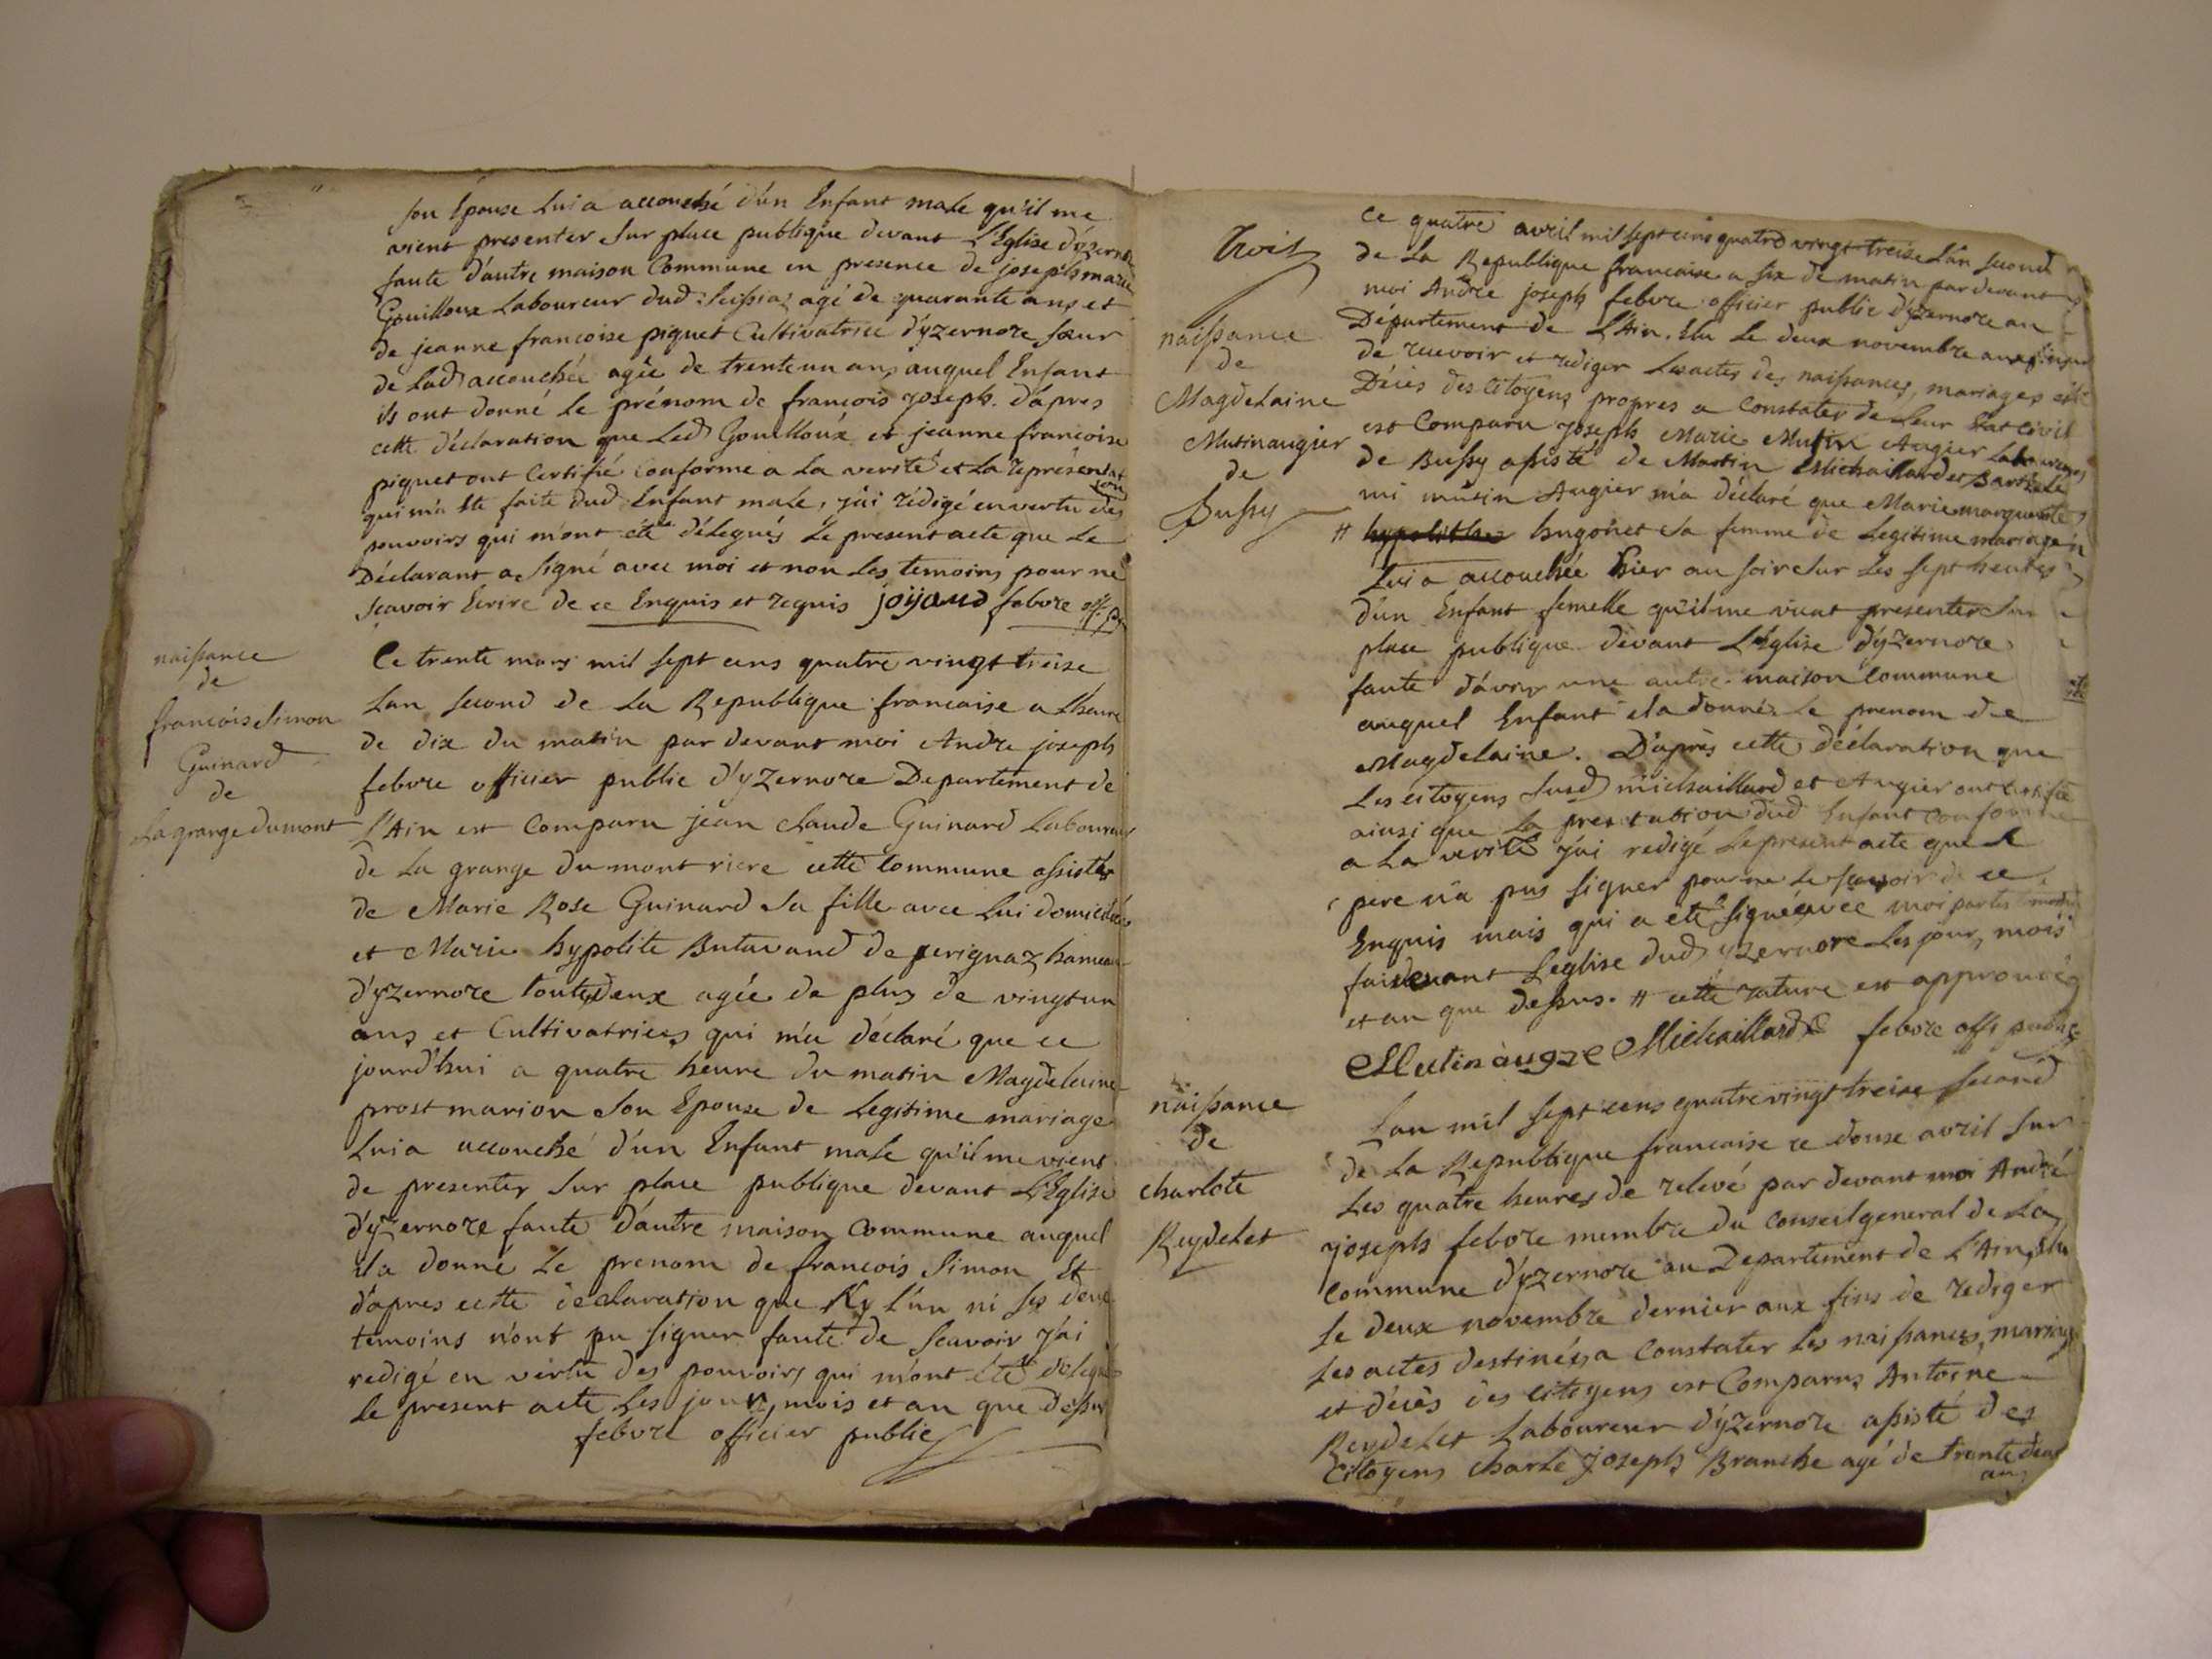 son Epouse Lui a accouché d'un Enfant male qu'il me
vient presenter sur place publique devant L'Eglise d'yzernore
faute d'autre maison Commune en presence de joseph marie
Gouilloux Laboureur dud. Seissiaz agé de quarante ans et
de jeanne francoise piquet Cultivatrice d'yzernore sœur
de Lad accouchée agée de trente un ans auquel Enfant
ils ont donné le prénom de francois joseph. d'apres
cette déclaration que Led Gouilloux et jeanne francoise
piquet ont Certifié conforme a La verité et La représentation
qui m'a ete faite dud Enfant male, j'ai rédigé en vertu des
pouvoirs qui m'ont été délegués le present acte que Le
Déclarant a signé avec moi et non Les temoins pour ne
scavoir Ecrire de ce Enquis et requis joijaud febvre off. p.
naissance
de
francois Simon
Guinard
de
La grange dumont
Ce trente mars mil sept cens quatre vingt treise
Lan second de La Republique francaise a Lheure
de dix du matin par devant moi Andre joseph
febvre officier public d'yzernore Departement de
L'Ain est Comparu jean claude Guinard Laboureur
de La grange du mont riere cette Commune assisté
de Marie Rose Guinard sa fille avec Lui domiciliée
et Marie hypolite Butavand de perignaz hameau
d'yzernore toutes deux agée de plus de vingt un
ans et Cultivatrices qui m'a déclaré que ce
jourd'hui a quatre heure du matin Magdelaine
prost marion son Epouse de Legitime mariage
Lui a accouché d'un Enfant male qu'il me vient
de presenter sur place publique devant L'Eglise
d'yzernore faute d'autre maison Commune auquel
il a donné Le prenom de francois Simon Et
d'apres cette declaration que Ny L'un ni Les deux
temoins n'ont pu signer faute de scavoir j'ai
redigé en vertu des pouvoirs qui m'ont été delegués
le present acte Les jour, mois et an que dessus
febvre officier public
trois
naissance
de
Magdelaine
Mutinaugier
de
Bussy
Ce quatre avril mil sept cens quatre vingt treise L'an second
de La Republique francaise a six de matin par devant
moi André joseph febvre officier public d'yzernore au
Département de L'Ain. Elu Le deux novembre aux fins
de recevoir et rediger Les actes des naissances, mariages et
Décès des Citoyens propres a Constater de Leur Etat Civil
est Comparu joseph Marie Mutin Augier Laboureur
de Bussy assisté de Martin Michaillard et Barthele
mi mutin Augier m'a déclaré que Marie marguerite
# hypolithe hugonet sa femme de Legitime mariage
Lui a accouchée hier au soir sur Les sept heures
d'un Enfant femelle qu'il me vient presenter sur
place publique devant L'Eglise d'yzernore
faute d'avoir une autre maison Commune
auquel Enfant il a donné Le prenom de
Magdelaine. D'après cette déclaration que
Les citoyens susd michaillard et Augier ont certifié
ainsi que La presentation dud Enfant conforme
a La verité j'ai redigé Le present acte que Le
pere n'a pas signer pour ne Le scavoir de ce
Enquis mais qui a eté signé avec moi par les temoins
fai devant L'eglise dud yzernore Les jour, mois
et an que dessus. # cette rature est approuvée
Mutin augze Michaillard febvre offi public
naissance
de
charlote
Reydelet
Lan mil sept cens quatre vingt treise second
de La Republique francaise ce douse avril sur
Les quatre heures de relevé par devant moi André
joseph febvre membre du Conseil general de La
Commune d'yzernore au Departement de L'Ain, Elu
Le deux novembre dernier aux fins de rediger
Les actes destinés a Constater Les naissances, mariage
et décès des citoyens est Comparu Antoine
Reydelet Laboureur d'yzernore assisté des
Citoyens charle joseph Branche agé de trente deux
ans